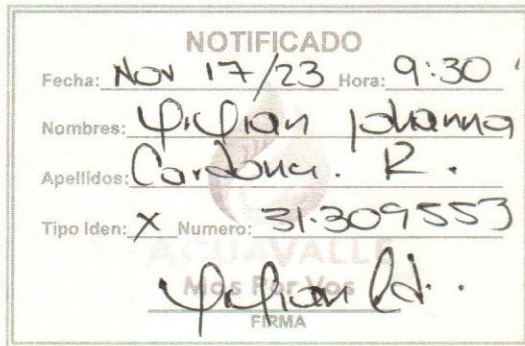 NOTIFICADO
Fecha: Nov 17/23 Hora: 9:30
Nombres: Lilian Johanna
Apellidos: Cardona. R.
Tipo Iden: X Numero: 31.309553
ACUAVALLE
Mas Por Vos
FIRMA